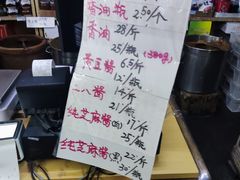 香油瓶 2.50/个
香油 28/斤
25/瓶 (380g)
黄豆酱 6.5/斤
12/瓶
二八酱 14/斤
21/瓶
纯芝麻酱(白) 17/斤
25/瓶
纯芝麻酱(黑) 22/斤
30/瓶